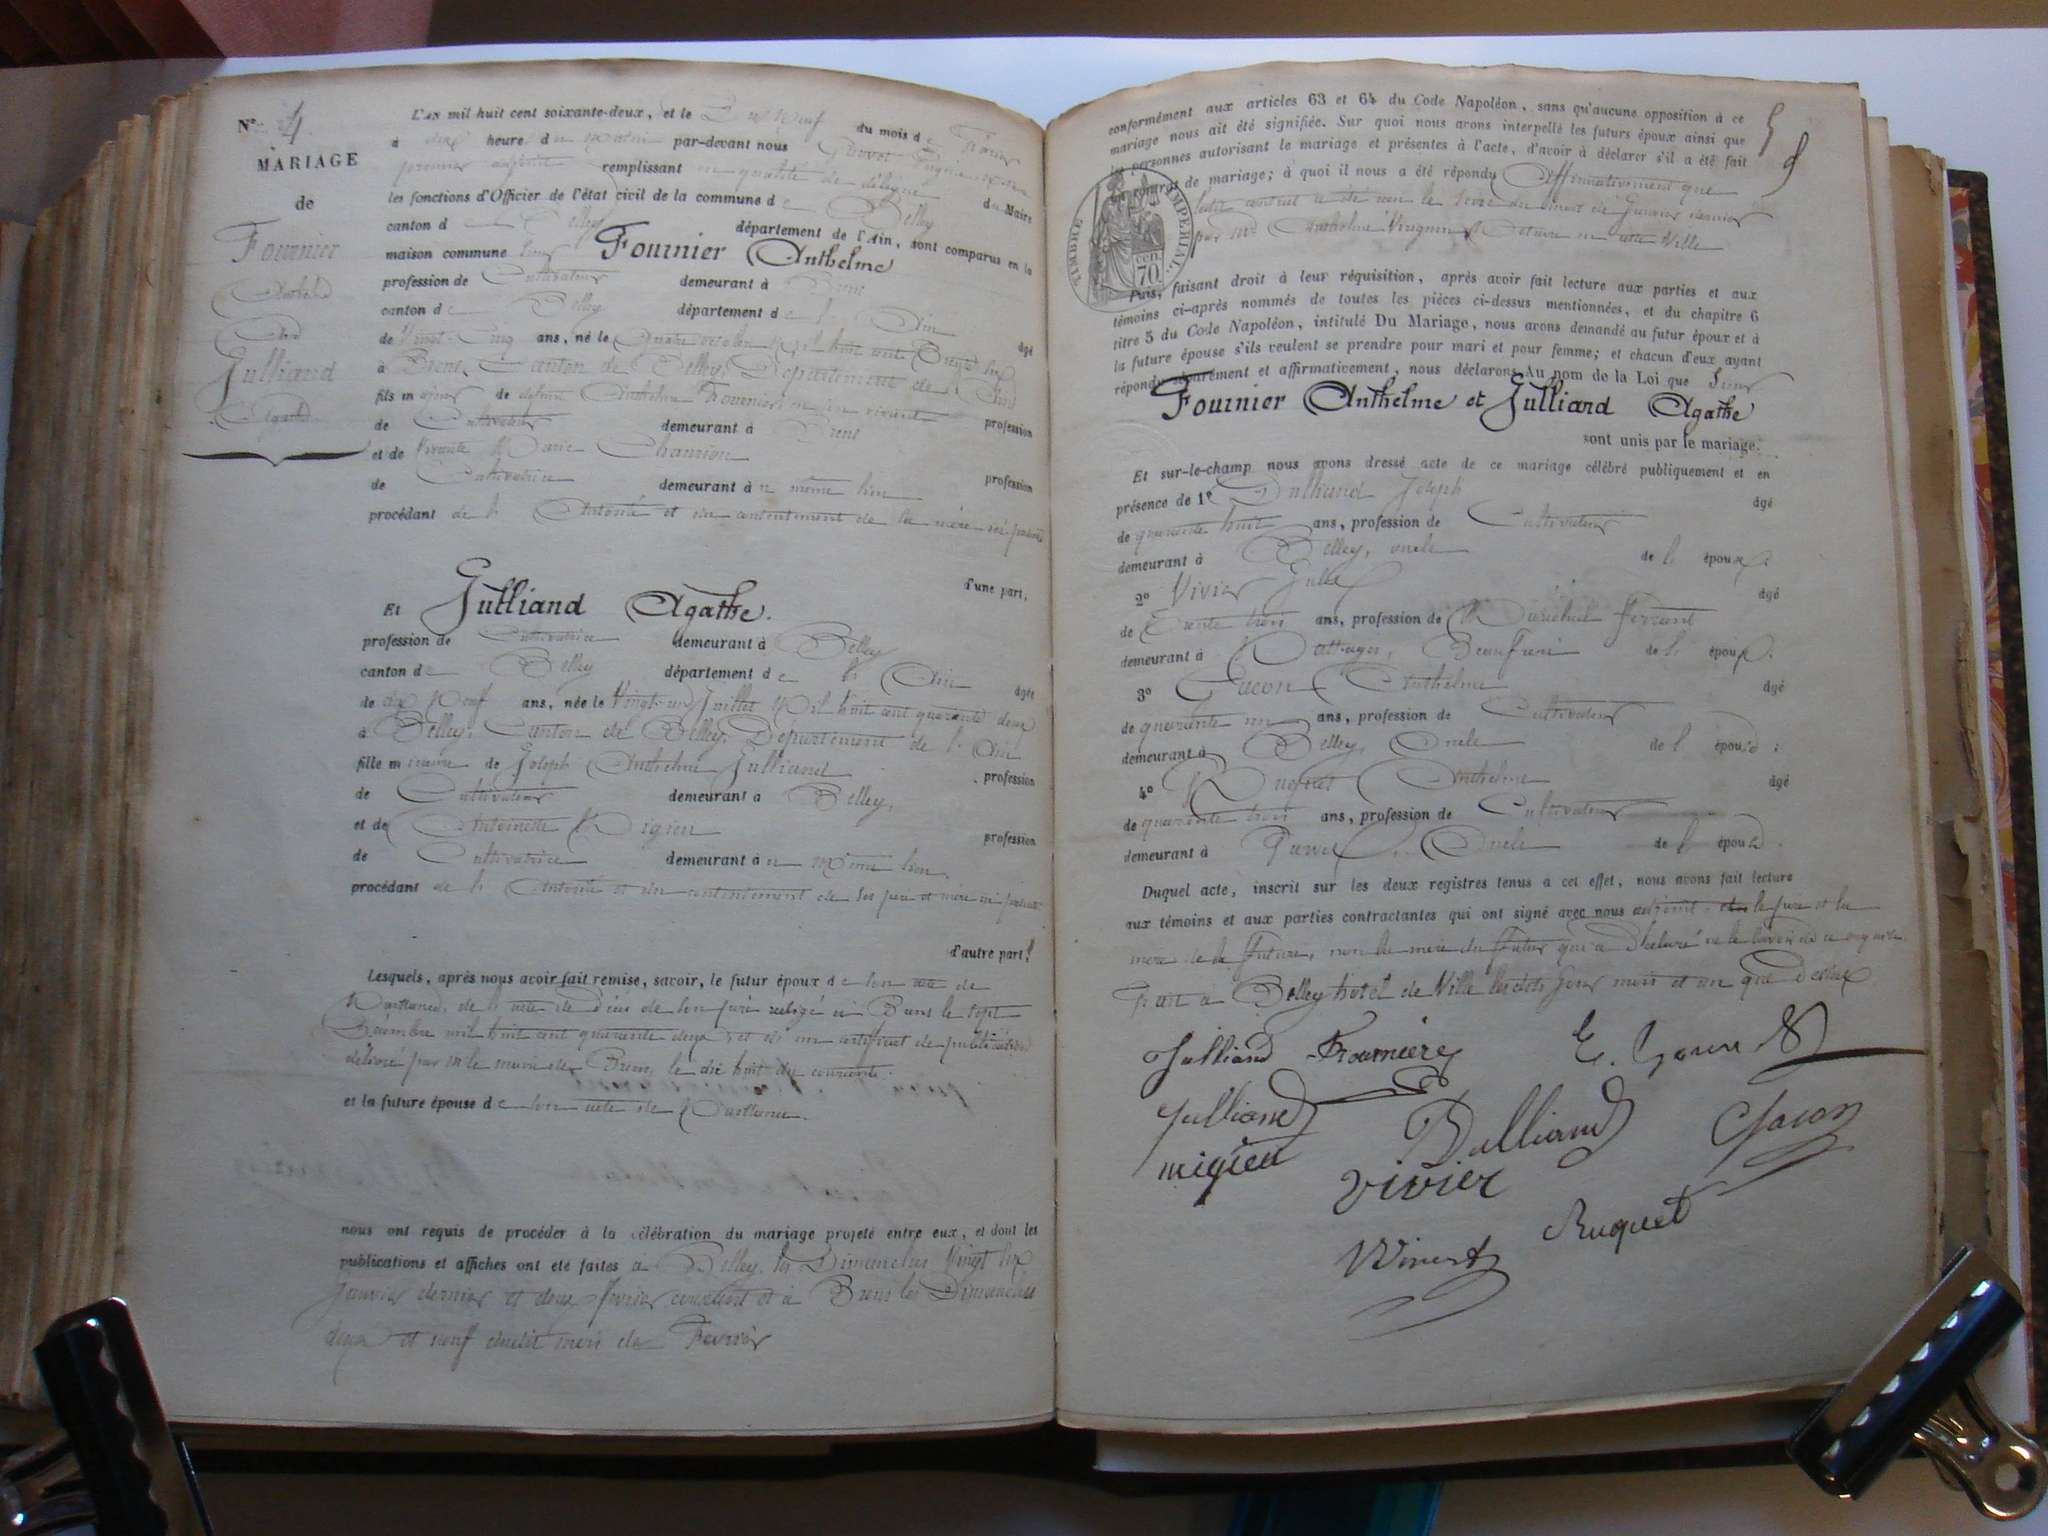 N° 4
MARIAGE
de
Fournier
Anthelme
and
Julliand
Agathe
L'AN mil huit cent soixante-deux, et le Dix Neuf du mois de Février
à dix heure du matin par-devant nous
premier adjoint remplissant en qualité de délégué du Maire
les fonctions d'Officier de l'état civil de la commune de Belley
canton de Belley département de l'Ain, sont comparus en la
maison commune Sieur Fournier Anthelme
profession de Cultivateur demeurant à Brens
canton de Belley département de l'Ain âgé
de Vingt-Cinq ans, né le quatre octobre Mil huit cent Trente six
à Brens, Canton de Belley, Département de l'Ain
fils majeur de défunt Anthelme Fournier, en son vivant profession
de Cultivateur demeurant à Brens
et de vivante Marie Chamion
profession
de Cultivatrice demeurant à u même lieu
procédant de l'Autorité et du consentement de sa mère ici présente
d'une part,
Et Julliand Agathe.
profession de Cultivatrice demeurant à Belley
canton de Belley département de l'Ain âgée
de dix Neuf ans, née le Vingt un Juillet Mil huit cent quarante deux
à Belley, Canton de Belley, Département de l'Ain
fille mineure de Joseph Anthelme Julliand profession
de Cultivateur demeurant à Belley,
et de Antoinette Migieu profession
de Cultivatrice demeurant à u même lieu,
procédant de l'Autorité et du consentement de ses père et mère ici présents
d'autre part;
Lesquels, après nous avoir fait remise, savoir, le futur époux de son acte de
Naissance, de l'acte de décès de son père rédigé à Brens le sept
Décembre mil huit cent quarante deux, et d'un certificat de publication
délivré par M. le maire de Brens, le dix huit du courant.
et la future épouse de son acte de Naissance.
nous ont requis de procéder à la célébration du mariage projeté entre eux, et dont les
publications et affiches ont été faites à Belley, les Dimanches Vingt six
Janvier dernier et deux février courant et à Brens les Dimanches
deux et neuf dudit mois de Février
5
conformément aux articles 63 et 64 du Code Napoléon, sans qu'aucune opposition à ce
mariage nous ait été signifiée. Sur quoi nous avons interpellé les futurs époux ainsi que
les personnes autorisant le mariage et présentes à l'acte, d'avoir à déclarer s'il a été fait
contrat de mariage; à quoi il nous a été répondu Affirmativement que
ledit contrat a été reçu le treize du mois de Janvier dernier
par Me Anthelme Notaire en cette Ville
TIMBRE IMPERIAL
70 cen.
Puis, faisant droit à leur réquisition, après avoir fait lecture aux parties et aux
témoins ci-après nommés de toutes les pièces ci-dessus mentionnées, et du chapitre 6
titre 5 du Code Napoléon, intitulé Du Mariage, nous avons demandé au futur époux et à
la future épouse s'ils veulent se prendre pour mari et pour femme; et chacun d'eux ayant
répondu séparément et affirmativement, nous déclarons Au nom de la Loi que Sieur
Fournier Anthelme et Julliard Agathe
sont unis par le mariage.
Et sur-le-champ nous avons dressé acte de ce mariage célébré publiquement et en
présence de 1° Dulliand Joseph âgé
de quarante huit ans, profession de Cultivateur
demeurant à Belley, oncle de l'époux.
2° Vivier Jules âgé
de Trente trois ans, profession de Maréchal ferrant
demeurant à Nattages, Beaufrère de l'époux.
3° Gacon Anthelme âgé
de quarante un ans, profession de Cultivateur
demeurant à Belley, Oncle de l'épouse;
4° Ruquet Anthelme âgé
de quarante trois ans, profession de Cultivateur
demeurant à Parves, Oncle de l'épouse.
Duquel acte, inscrit sur les deux registres tenus à cet effet, nous avons fait lecture
aux témoins et aux parties contractantes qui ont signé avec nous adjoint, et le père et la
mère de la Future, non la mère du Futur qui a déclaré ne le savoir de ce requise
Fait à Belley hôtel de Ville lesdits jour mois et an que dessus
Julliand Fournier
Julliand
migieu
Dulliand
vivier
Gacon
Ruquet